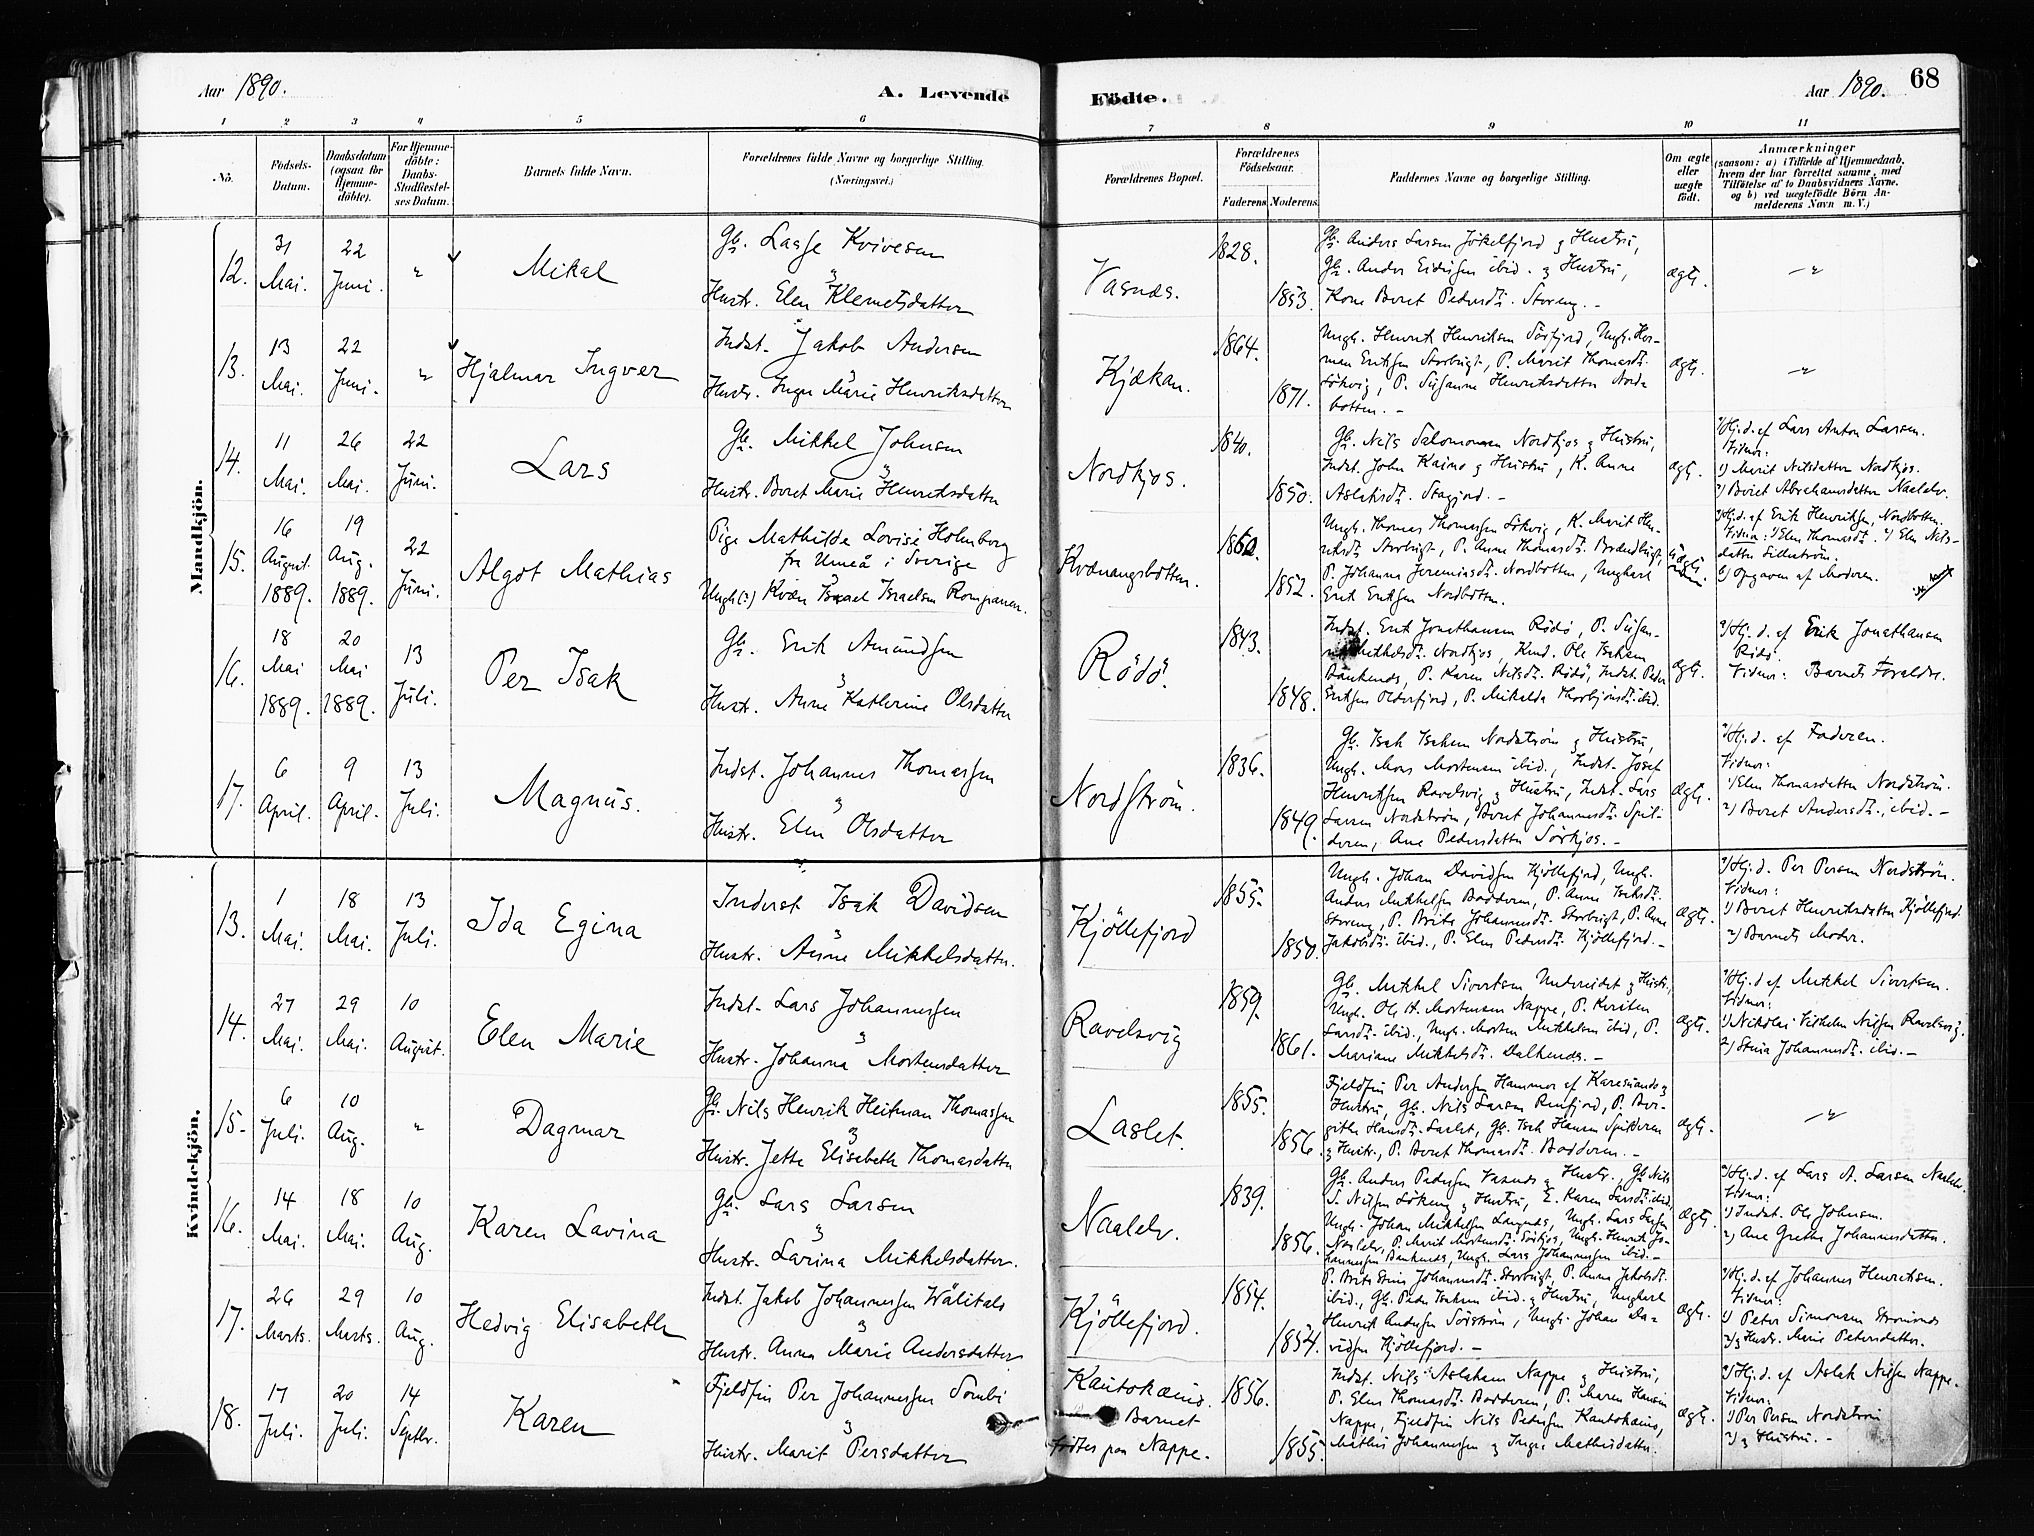 Aar 1890.
A. Levende
Födte.
Aar 1890.
68
1 2 3 4 5 6 7 8 9 10 11
Nö.
Födsels-Datum.
Daabsdatum (ogsaa for Hjemme-döbte).
For Hjemme-döbte: Daabs-Stadfæstel-ses Datum.
Barnets fulde Navn.
Forældrenes fulde Navne og borgerlige Stilling. (Næringsvei.)
Forældrenes Bopæl.
Forældrenes Födselsaar.
Faderens. Moderens.
Faddernes Navne og borgerlige Stilling.
Om ægte eller uægte födt.
Anmærkninger
(saasom: a) i Tilfælde af Hjemmedaab, hvem der har forrettet samme, med Tilföielse af to Daabsvidners Navne, og b) ved uægtefödte Börn Anmelderens Navn m. V.)
Mandkjön.
12. 31 Mai. 22 Juni. " Mikal
Gb. Lasse Kvivesen
&
Hustr. Elen Klemetsdatter
Vasnes. 1828. 1853.
Gb. Anders Larsen Jökelfjord & Hustru,
Gb. Anders Eidissen ibid. & Hustru,
Kone Beret Pedersdr. Storeng. -
ægte. - " -
13. 13 Mai. 22 Juni. " Hjalmar Ingver
Indst. Jakob Andersen
&
Hustr. Inger Marie Henriksdatter
Kjækan. 1864. 1871.
Ungk. Henrik Henriksen Sörfjord, Ungk. Her-
man Eriksen Storbugt, P. Marit Thomasdr.
Sökvig, P. Susanne Henriksdatter Nord-
botten. -
ægte. - " -
14. 11 Mai. 26 Mai. 22 Juni. Lars
Gb. Mikkel Johnsen
&
Hustr. Beret Marie Henriksdatter
Nordkjos. 1840. 1850.
Gb. Nils Salomonsen Nordkjos & Hustru,
Indst. John Kaino & Hustru, K. Anne
Aslaksdr. Stagjord. -
ægte.
a) Hj. d. af Lars Anton Larsen.
Vidner:
1) Marit Nilsdatter Nordkjos.
2) Beret Abrahamsdatter Naalelv.
15. 16 August 1889. 19 Aug. 1889. 22 Juni. Algot Mathias
Pige Mathilde Lovise Holmberg
fra Umeå i Sverige
&
Ungk (:) Kvæn Israel Israelsen Rompanen.
Kvænangsbotten. 1860. 1852.
Ungk. Thomas Thomassen Sökvig, K. Marit Hen-
riksdr. Storbugt, P. Anne Thomasdr. Brændbugt,
P. Johanna Jeremiasdr. Nordbotten, Ungkarl
Erik Eriksen Nordbotten.
a) Hj. d. af Erik Henriksen, Nordbotten.
Vidner: 1) Elen Thomasdr. 2) Elen Nils-
datter
b) Opgaven af Moderen.
16. 18 Mai 1889. 20 Mai 1889. 13 Juli. Per Isak
Gb. Erik Amundsen
&
Hustr. Anne Katherine Olsdatter
Rödö. 1843. 1848.
Indst. Erik Jonathansen Rödö, P. Susan-
Mikkelsdr. Nordkjos, Ole Isaksen
P. Karen Nilsdr. Rödö, Indst. Peder
Eriksen Olderfjord, P. Mikalda Thorbjörnsdr. ibid.
ægte.
a) Hj. d. af Erik Jonathansen
Rödö.
Vidner: Barnets Forældre.
17. 6 April. 9 April. 13 Juli. Magnus.
Indst. Johannes Thomassen
&
Hustr. Elen Olsdatter
Nordström. 1836. 1849.
Gb. Isak Isaksen Nordström & Hustru,
Ungk. Mons Mortensen ibid., Indst. Josef
Henriksen Ravelsvig & Hustru, Indst. Lars
Larsen Nordström, Beret Johannesdr. Spil-
deren, Ane Pedersdatter Sörkjos. -
ægte.
a) Hj. d. af Faderen.
Vidner:
1) Elen Thomasdatter Nordström.
2) Beret Andersdr., ibid. -
Kvindekjön.
13. 1 Mai. 18 Mai. 13 Juli. Ida Egina
Inderst Isak Davidsen
&
Hustr. Anne Mikkelsdatter.
Kjöllefjord 1855. 1850.
Ungk. Johan Davidsen Kjöllefjord, Ungk.
Anders Mikkelsen Badderen, P. Anne Isaksdr.
Storeng, P. Brita Johannesdr. Storbugt, P. Anne
Jakobsdr. ibid., P. Elen Pedersdr. Kjöllefjord. -
ægte.
a) Hj. d. Per Persen Nordström.
Vidner:
1) Beret Henriksdatter Kjöllefjord.
2) Barnets Moder.
14. 27 Mai. 29 Mai. 10 August. Elen Marie
Indst. Lars Johannessen
&
Hustr. Johanna Mortensdatter
Ravelsvig 1859. 1861.
Gb. Mikkel Sivertsen Undereidet & Hustr.,
Ungk. Ole H. Mortensen Nappe, P. Kirsten
Larsdr. ibid., Ungk. Morten Mikkelsen ibid, P.
Mariane Mikkelsdr. Dalhendes. -
ægte.
a) Hj. d. af Mikkel Sivertsen.
Vidner:
1) Nikolai Vilhelm Nilsen Ravelsvig.
2) Stina Johannesdr. ibid. -
15. 6 Juli. 10 Aug. " Dagmar
Gb. Nils Henrik Heitman Thomassen
&
Hustr. Jette Elisabeth Thomasdatter
Laslet. 1855. 1856.
Fjeldfin Per Andersen Hammer af Karesuando &
Hustru, Gb. Nils Larsen Renfjord, P. Ber-
githe Hansdr. Laslet, Gb. Isak Hansen Spilderen
& Hustr., P. Beret Thomasdr. Badderen. -
ægte. - " -
16. 14 Mai. 18 Mai. 10 Aug. Karen Lavina
Gb. Lars Larsen
&
Hustr. Larina Mikkelsdatter.
Naalelv. 1839. 1856.
Gb. Anders Pedersen Vasnes & Hustr., Gb. Nils
S. Nilsen Sökeng & Hustru, E. Karen Larsdr. ibid,
Ungk. Johan Mikkelsen Langnes, Ungk. Lars Larsen
Naalelv, P. Marit Mortensdr. Sörkjos, Ungk. Henrik Jo-
hannessen Bankenes, Ungk. Lars Johannessen ibid. -
ægte.
a) Hj. d. af Lars A. Larsen Naalelv.
Vidner:
1) Indst. Ole Johnsen.
2) Ane Grethe Johannesdatter.
17. 26 Marts. 29 Marts. 10 Aug. Hedvig Elisabeth
Indst. Jakob Johannessen Wälitalo
&
Hustr. Anna Marie Andersdatter
Kjöllefjord. 1854. 1854.
P. Brita Stina Johannesdr. Storbugt, P. Anna Jakobsdr.
ibid., Gb. Peder Isaksen ibid. & Hustru, Ungkarl
Henrik Andersen Sörström, Ungk. Johan Da-
vidsen Kjöllefjord. -
ægte.
a) Hj. d. af Johannes Henriksen.
Vidner:
1) Peter Simonsen Strömnes
2) & Hustr. Marie Petersdatter.
18. 17 Juli. 20 Juli. 14 Septbr. Karen
Fjeldfin Per Johannessen Sombi
&
Hustr. Marit Persdatter
Kautokæino. Barnet födtes paa Nappe. 1856. 1855.
Indst. Nils Aslaksen Nappe & Hustru,
P. Elen Thomasdr. Badderen, P. Maren Hansen
Nappe, Fjeldfin Nils Pedersen Kautokæino,
Mathis Johannessen & Inger Mathisdatter.
ægte.
a) Hj. d. af Aslak Nilsen Nappe.
Vidner:
1) Per Persen Nordström
2) & Hustru. -